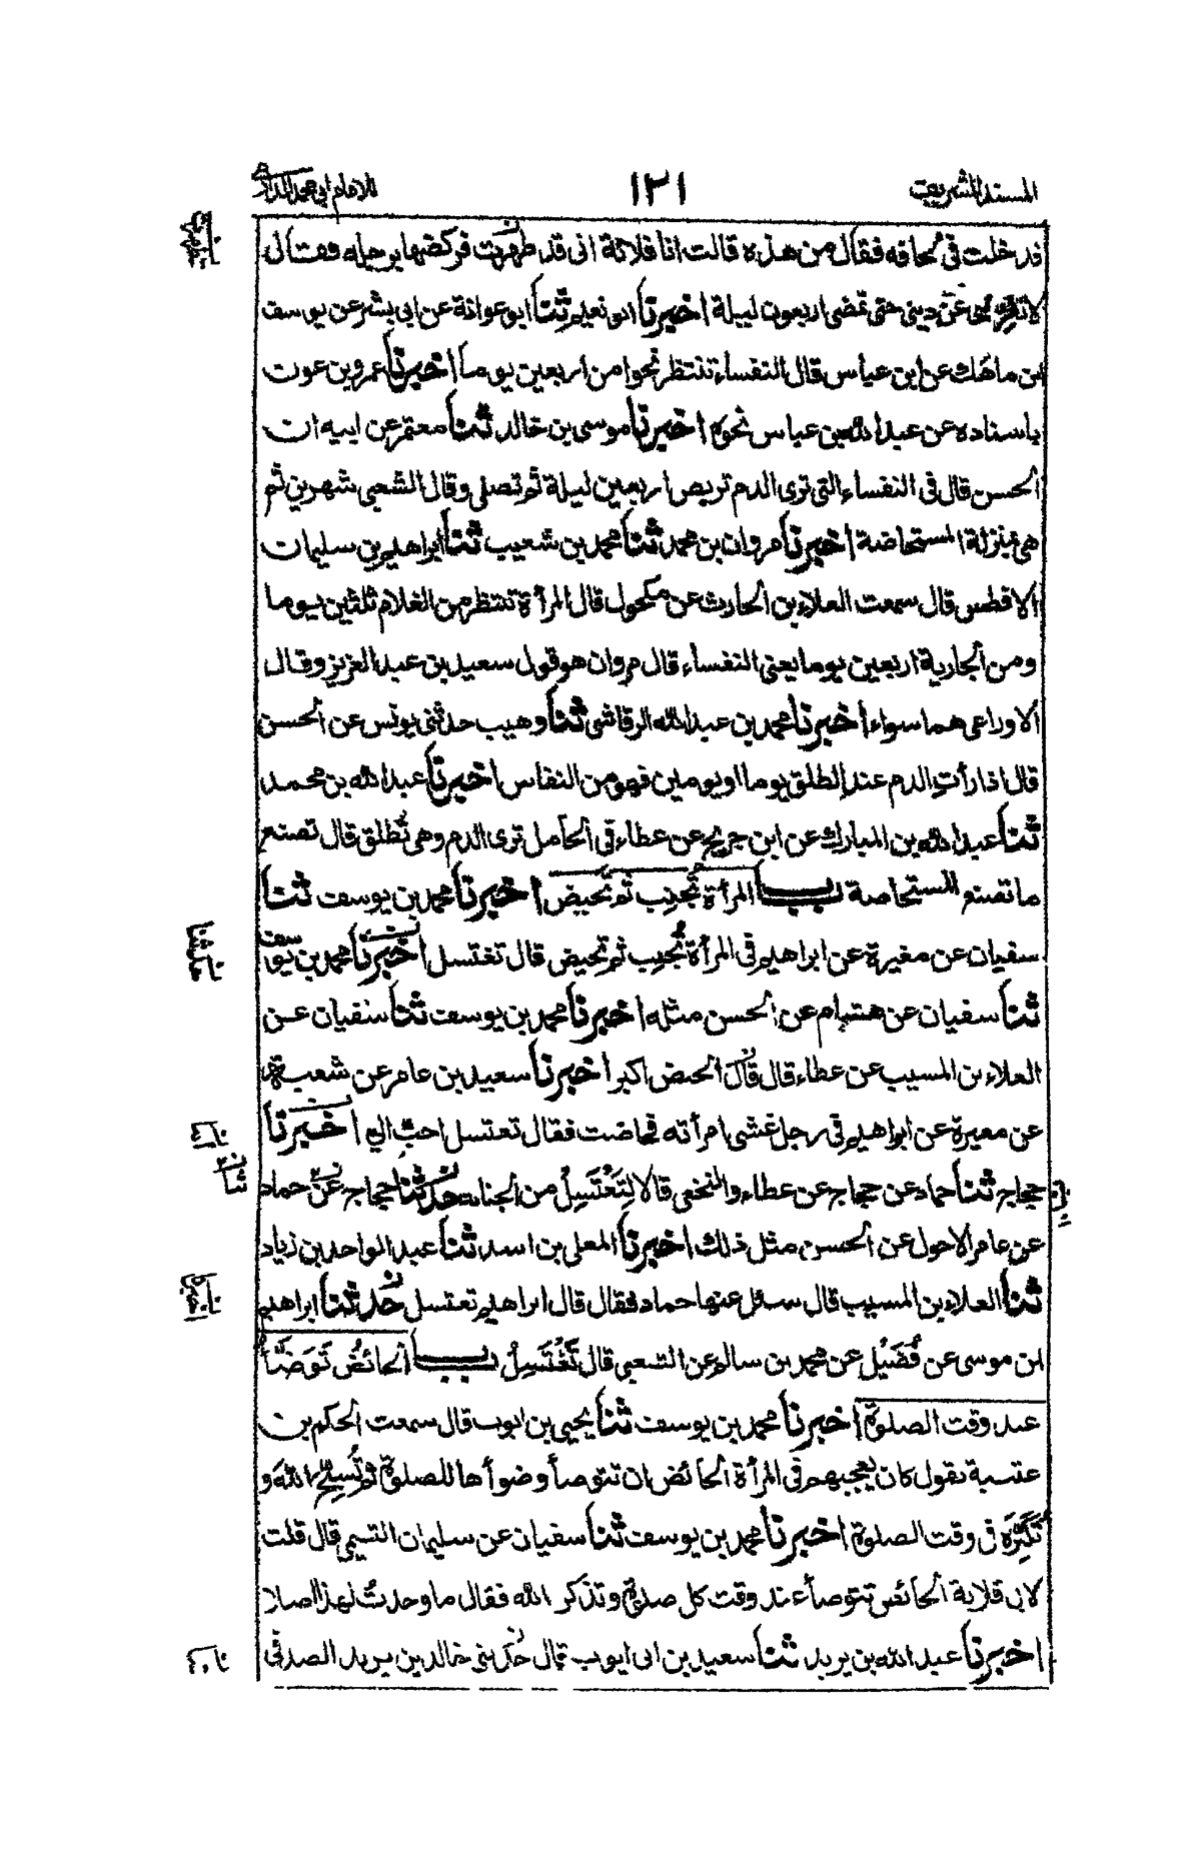 المسند الشريف ١٢١ للامام ابي محمد الدارمي
قد خلت في لحافه فقال من هذه قالت انا فلانة اني قد طهرت فركضها برجله فقال
لا عن ديني حتى تمضي اربعون ليلة اخبرنا ابو نعيم ثنا ابو عوانة عن ابي بشر عن يوسف
بن ماهك عن ابن عباس قال النفساء تنتظر نحوا من اربعين يوما اخبرنا عمرو بن عون
باسناده عن عبد الله بن عباس نحوه اخبرنا موسى بن خالد ثنا معتمر عن ابيه ان
الحسن قال في النفساء التي ترى الدم تربص اربعين ليلة ثم تصلي وقال الشعبي شهرين ثم
هي بمنزلة المستحاضة اخبرنا مروان بن محمد ثنا محمد بن شعيب ثنا ابراهيم بن سليمان
الافطس قال سمعت العلاء بن الحارث عن مكحول قال المرأة تنتظر من الغلام ثلثين يوما
ومن الجارية اربعين يوما يعني النفساء قال مروان هو قول سعيد بن عبد العزيز وقال
الاوزاعي هما سواء اخبرنا محمد بن عبد الله الرقاشي ثنا وهيب حدثني يونس عن الحسن
قال اذا رأت الدم عند الطلق يوما او يومين فهو من النفاس اخبرنا عبد الله بن محمد
ثنا عبد الله بن المبارك عن ابن جريج عن عطاء في الحامل ترى الدم وهي تطلق قال تصنع
ما تصنع المستحاضة باب المرأة تجنب ثم تحيض اخبرنا محمد بن يوسف ثنا
سفيان عن مغيرة عن ابراهيم في المرأة تُجنِب ثم تحيض قال تغتسل اخبرنا محمد بن يوسف
ثنا سفيان عن هشام عن الحسن مثله اخبرنا محمد بن يوسف ثنا سفيان عن
العلاء بن المسيب عن عطاء قال قال الحيض اكبر اخبرنا سعيد بن عامر عن شعبة
عن مغيرة عن ابراهيم في رجل غشي امرأته فحاضت فقال تغتسل احبّ الي اخبرنا
حجاج ثنا حماد عن حجاج عن عطاء والنخعي قالا لِتَغْتَسِلْ من الجنابة حدثنا حجاج عن حماد
عن عامر الاحول عن الحسن مثل ذلك اخبرنا المعلى بن اسد ثنا عبد الواحد بن زياد
ثنا العلاء بن المسيب قال سئل عنها حماد فقال قال ابراهيم تغتسل حدثنا ابراهيم
بن موسى عن فُضَيْل عن محمد بن سالم عن الشعبي قال تَغْتَسِلُ باب الحائض تَوَضَّأُ
عند وقت الصلوة اخبرنا محمد بن يوسف ثنا يحيى بن ايوب قال سمعت الحكم بن
عتيبة يقول كان يعجبهم في المرأة الحائض ان تتوضأ وضوأها للصلوة ثم تُسبِّح الله و
تُكَبِّرَه في وقت الصلوة اخبرنا محمد بن يوسف ثنا سفيان عن سليمان التيمي قال قلت
لابي قلابة الحائض تتوضأ عند وقت كل صلوة وتذكر الله فقال ما وجدتُ لهذا اصلا
اخبرنا عبد الله بن يزيد ثنا سعيد بن ابي ايوب قال حدثني خالد بن يزيد الصدفي